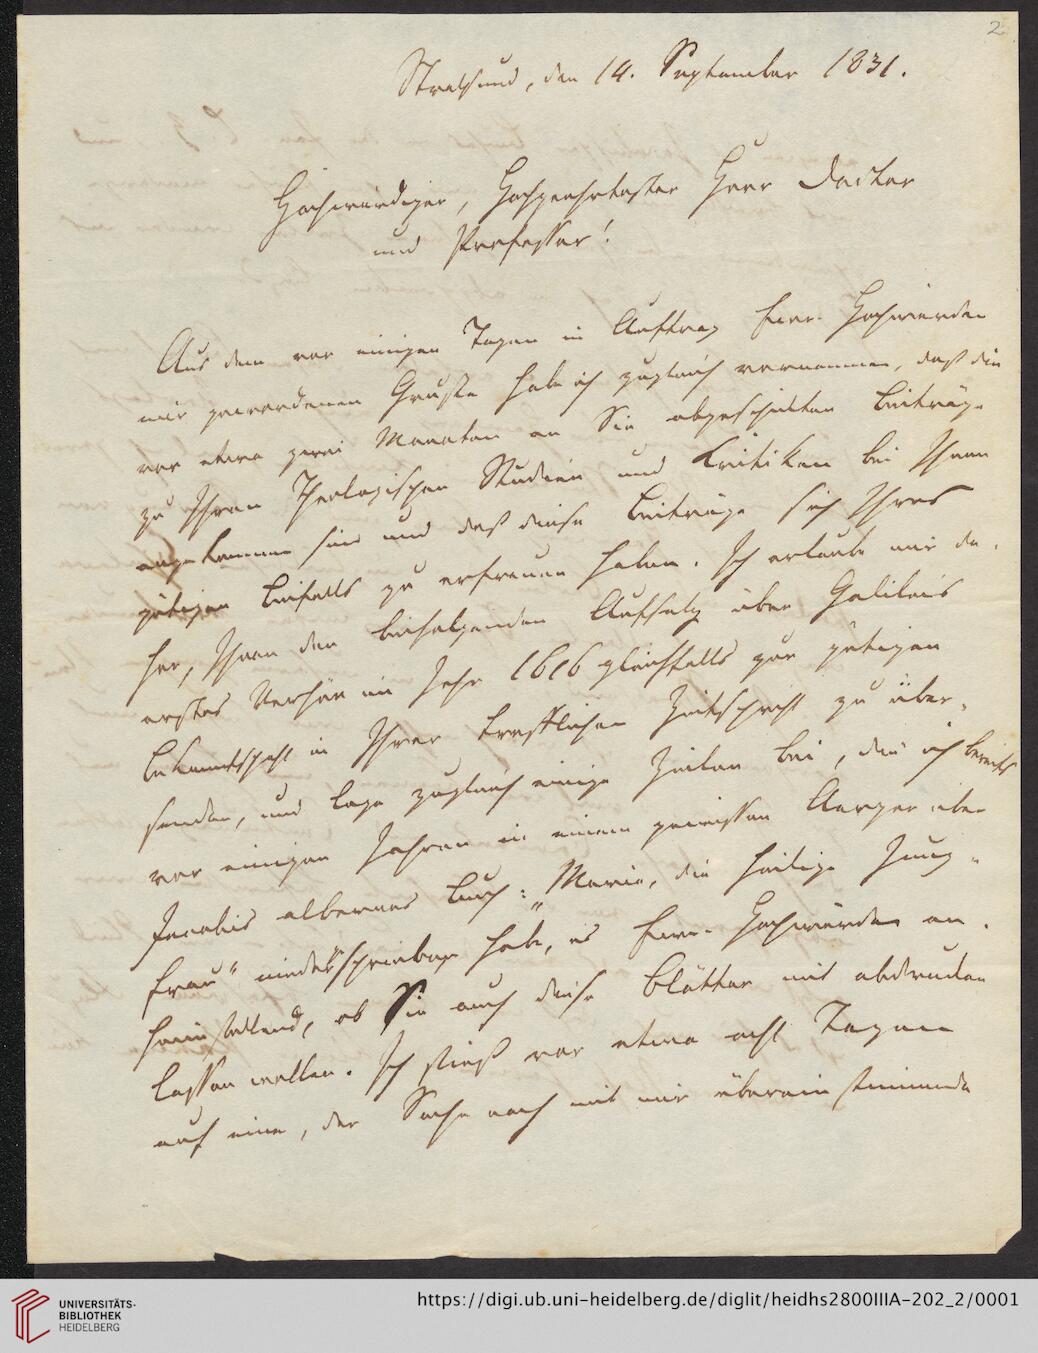 2
Stralsund, den 14. September 1831.
Hochwürdiger, Hochgeehrtester Herr Doctor
und Professor!
Aus dem vor einigen Tagen in Auftrag Euer Hochwürden
mir gewordenen Gruße habe ich zugleich vernommen, daß die
vor etwa zwei Monaten an Sie abgeschickten Beiträge
zu Ihren Theologischen Studien und Kritiken bei Ihnen
angekommen sind und daß diese Beiträge sich Ihres
gütigen Beifalls zu erfreuen haben. Ich erlaube mir da-
her, Ihnen den beifolgenden Aufsatz über Galileis
erstes Verhör im Jahr 1616 gleichfalls zur gütigen
in Ihrer trefflichen Zeitschrift zu über-
senden, und lege zugleich einige Zeilen bei, die ich bereits
vor einigen Jahren in einem gewissen Aerger über
Jacobis albernes Buch: „Maria, die heilige Jung-
frau" niedergeschrieben habe, es Euer Hochwürden an-
heimstellend, ob Sie auch diese Blätter mit abdrucken
lassen wollen. Ich stieß vor etwa acht Tagen
auf eine, der Sache nach mit mir übereinstimmende
UNIVERSITÄTS-
BIBLIOTHEK
HEIDELBERG
https://digi.ub.uni-heidelberg.de/diglit/heidhs2800IIIA-202_2/0001